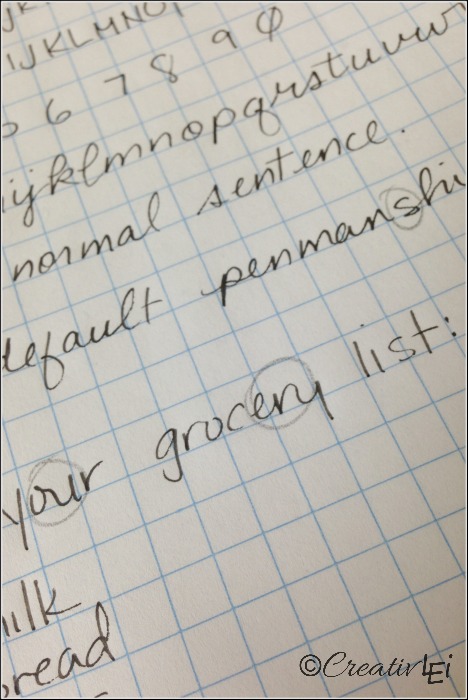 IJKLMNO
6 7 8 9 0
ijklmnopqrstuvw
normal sentence.
default penmanshi
your grocery list:
milk
bread
©CreativLEi